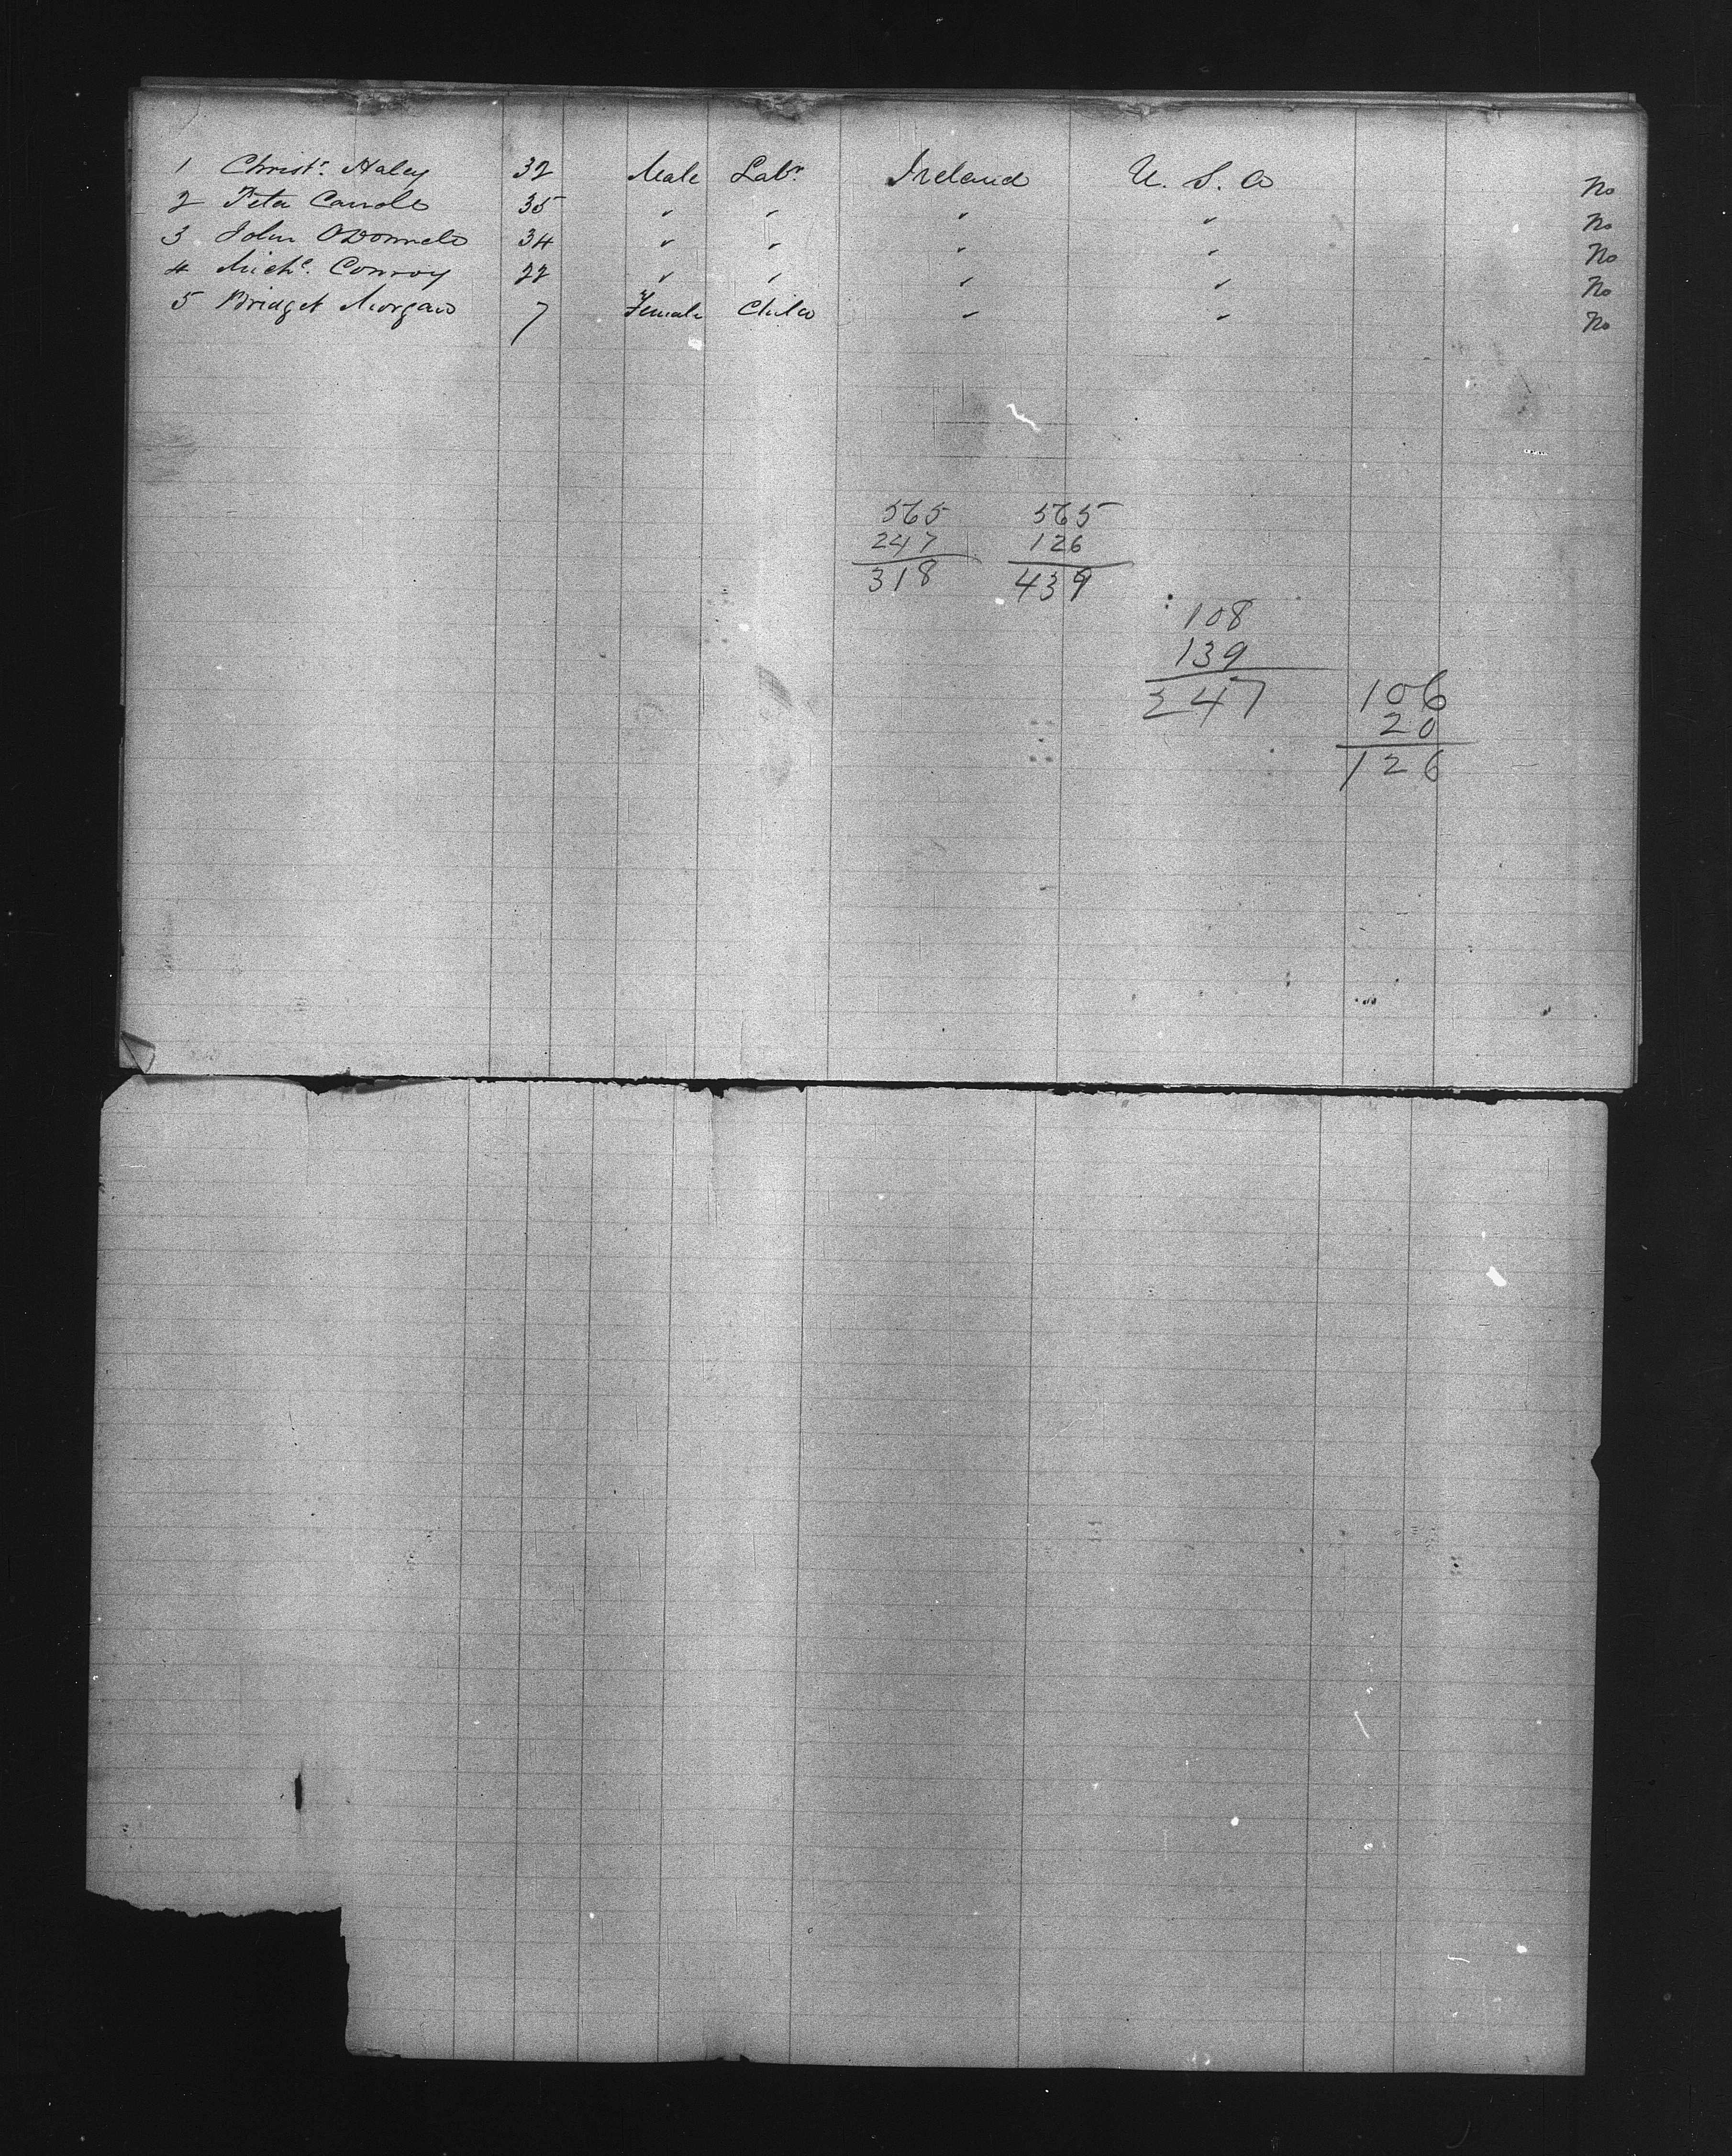 1 Christr. Haley 32 Male Labr. Ireland U. S. A No
2 Peter Carroll 35 " " " " No
3 John O'Donnell 34 " " " " No
4 Michl. Conroy 22 " " " " No
5 Bridget Morgan 7 Female Child " " No
565 565
247 126
318 439
108
139
247 106
20
126